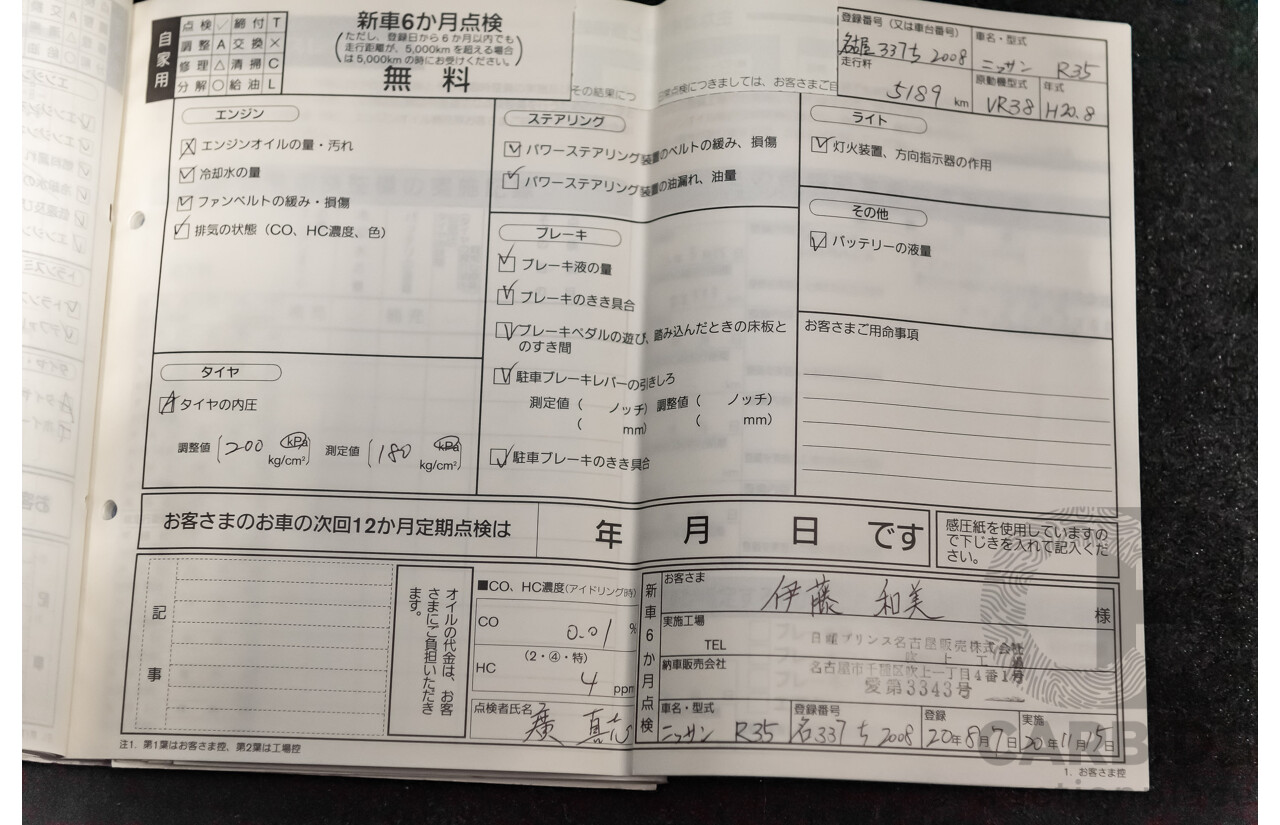 自家用
点検 ✓ 締付 T
調整 A 交換 ×
修理 △ 清掃 C
分解 ○ 給油 L
新車6か月点検
(ただし、登録日から6か月以内でも
走行距離が、5,000kmを超える場合
は5,000kmの時にお受けください。)
無料
その結果につ
常点検につきましては、お客さまご自
登録番号(又は車台番号)
名古屋 337ち 2008
車名・型式
ニッサン R35
走行粁
5189 km
原動機型式
VR38
年式
H20.8
エンジン
エンジンオイルの量・汚れ
冷却水の量
ファンベルトの緩み・損傷
排気の状態(CO、HC濃度、色)
タイヤ
タイヤの内圧
調整値(200 kPa kg/cm²) 測定値(180 kPa kg/cm²)
ステアリング
パワーステアリング装置のベルトの緩み、損傷
パワーステアリング装置の油漏れ、油量
ブレーキ
ブレーキ液の量
ブレーキのきき具合
ブレーキペダルの遊び、踏み込んだときの床板と
のすき間
駐車ブレーキレバーの引きしろ
測定値( ノッチ) 調整値( ノッチ)
( mm) ( mm)
駐車ブレーキのきき具合
ライト
灯火装置、方向指示器の作用
その他
バッテリーの液量
お客さまご用命事項
お客さまのお車の次回12か月定期点検は 年 月 日 です
感圧紙を使用していますの
で下じきを入れて記入くだ
さい。
記事
オイルの代金は、お客
さまにご負担いただき
ます。
■CO、HC濃度(アイドリング時)
CO
0.01 %
(2・④・特)
HC
4 ppm
点検者氏名
新車6か月点検
お客さま
伊藤 和美 様
実施工場
TEL
日産プリンス名古屋販売株式会社
吹上工場
納車販売会社
名古屋市千種区吹上一丁目4番1号
愛第3343号
車名・型式
ニッサン R35
登録番号
名337ち2008
登録
20年8月7日
実施
20年11月15日
注1. 第1葉はお客さま控、第2葉は工場控
1. お客さま控
CARBI